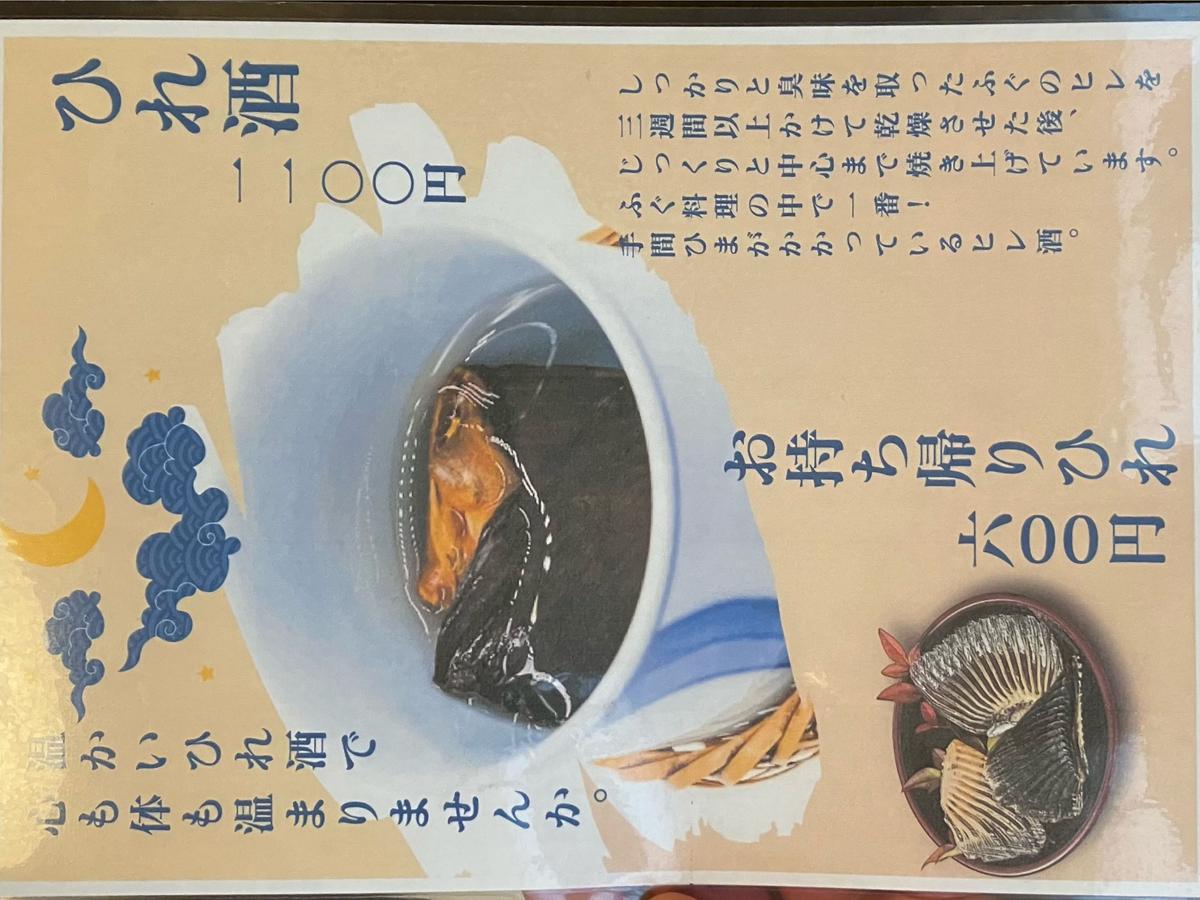 ひれ酒
一一〇〇円
しっかりと臭味を取ったふぐのヒレを
三週間以上かけて乾燥させた後、
じっくりと中心まで焼き上げています。
ふぐ料理の中で一番！
手間ひまがかかっているヒレ酒。
お持ち帰りひれ
六〇〇円
温かいひれ酒で
心も体も温まりませんか。